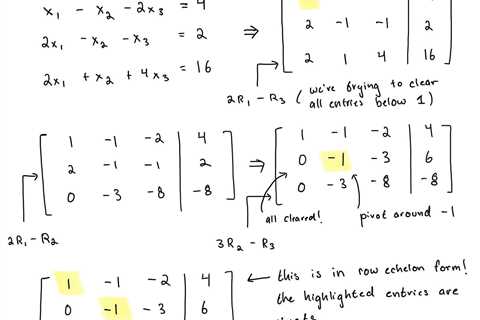 x₁ - x₂ - 2x₃ = 4
2x₁ - x₂ - x₃ = 2 ⇒ 2 -1 -1 | 2
2x₁ + x₂ + 4x₃ = 16 2 1 4 | 16
2R₁ - R₃ (we're trying to clear
all entries below 1)
1 -1 -2 | 4 1 -1 -2 | 4
2 -1 -1 | 2 ⇒ 0 -1 -3 | 6
0 -3 -8 | -8 0 -3 -8 | -8
all cleared! pivot around -1
2R₁ - R₂ 3R₂ - R₃
1 -1 -2 | 4 ← this is in row echelon form!
0 -1 -3 | 6 the highlighted entries are